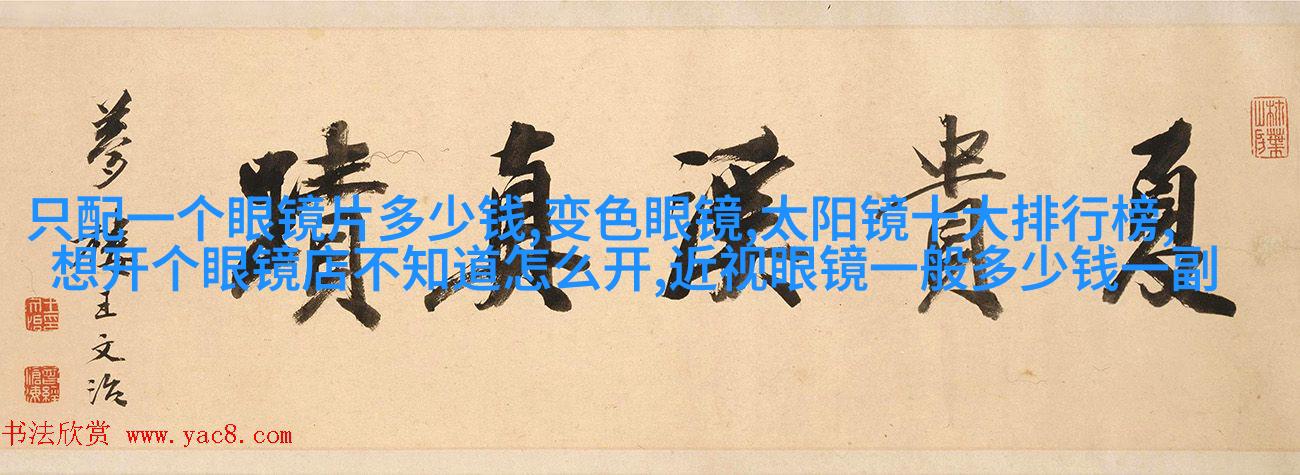 夏貴溪真蹟
夢樓王文治
只配一个眼镜片多少钱,变色眼镜,太阳镜十大排行榜,
想开个眼镜店不知道怎么开,近视眼镜一般多少钱一副
曾經滄海
书法欣赏 www.yac8.com